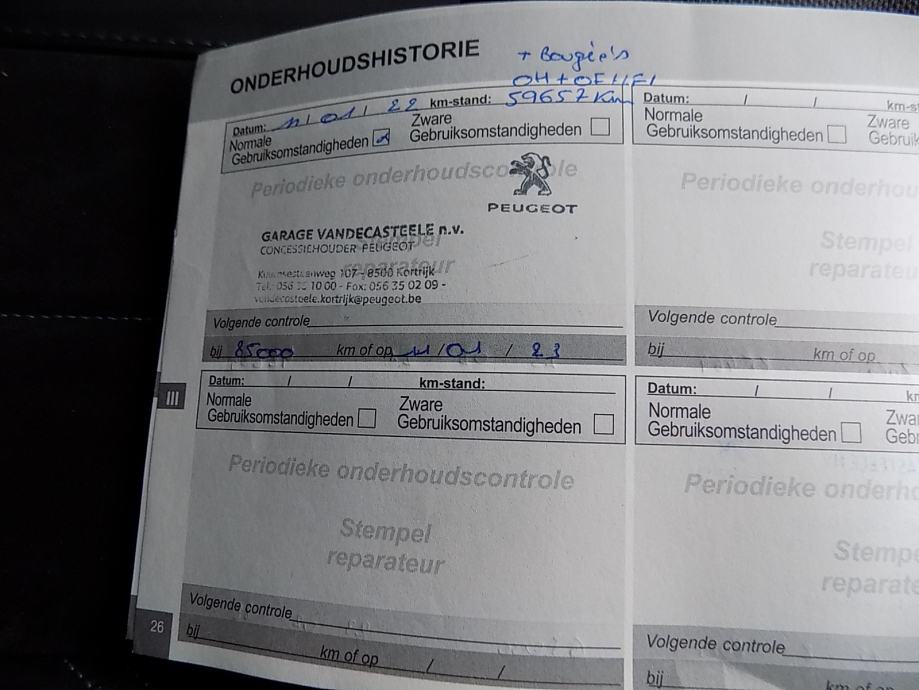 ONDERHOUDSHISTORIE
+ Bougie's
OH + OF
Datum: 11/01/22 km-stand: 59657 Km
Normale
Gebruiksomstandigheden
Zware
Gebruiksomstandigheden
Periodieke onderhoudscontrole
PEUGEOT
Stempel
reparateur
GARAGE VANDECASTEELE n.v.
CONCESSIEHOUDER PEUGEOT
107 - 8500 Kortrijk
Tel. 056 10 00 - Fax: 056 35 02 09 -
vandecasteele.kortrijk@peugeot.be
Volgende controle
bij 85000 km of op 11/01/23
Datum: / / km-s
Normale
Gebruiksomstandigheden
Zware
Gebruik
Periodieke onderhou
Stempel
reparateu
Volgende controle
bij km of op
III
Datum: / / km-stand:
Normale
Gebruiksomstandigheden
Zware
Gebruiksomstandigheden
Periodieke onderhoudscontrole
Stempel
reparateur
Volgende controle
bij km of op / /
Datum: / / km
Normale
Gebruiksomstandigheden
Zwa
Gebr
Periodieke onderho
Stempe
reparate
Volgende controle
bij km of op
26